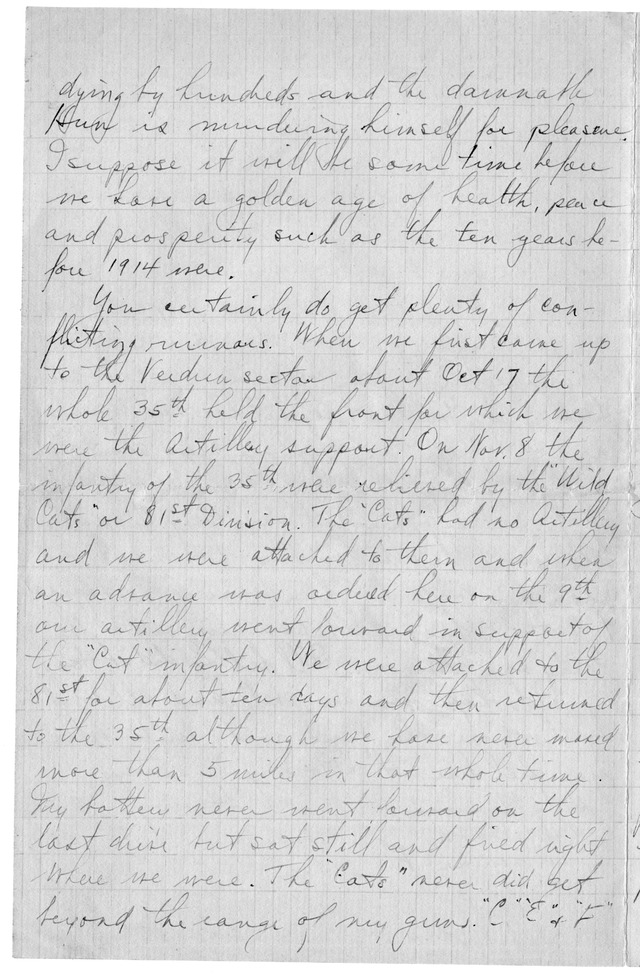 dying by hundreds and the damnable
Hun is murdering himself for pleasure.
I suppose it will be some time before
we have a golden age of health, peace
and prosperity such as the ten years be-
fore 1914 were.
You certainly do get plenty of con-
flicting rumors. When we first came up
to the Verdun sector about Oct 17 the
whole 35th held the front for which we
were the Artillery support. On Nov. 8 the
infantry of the 35th were relieved by the "Wild
Cats" or 81st Division. The "Cats" had no Artillery
and we were attached to them and when
an advance was ordered here on the 9th
our artillery went forward in support of
the "Cat" infantry. We were attached to the
81st for about ten days and then returned
to the 35th although we have never moved
more than 5 miles in that whole time.
My battery never went forward on the
last drive but sat still and fired right
where we were. The "Cats" never did get
beyond the range of my guns. "C" "E" & "F"